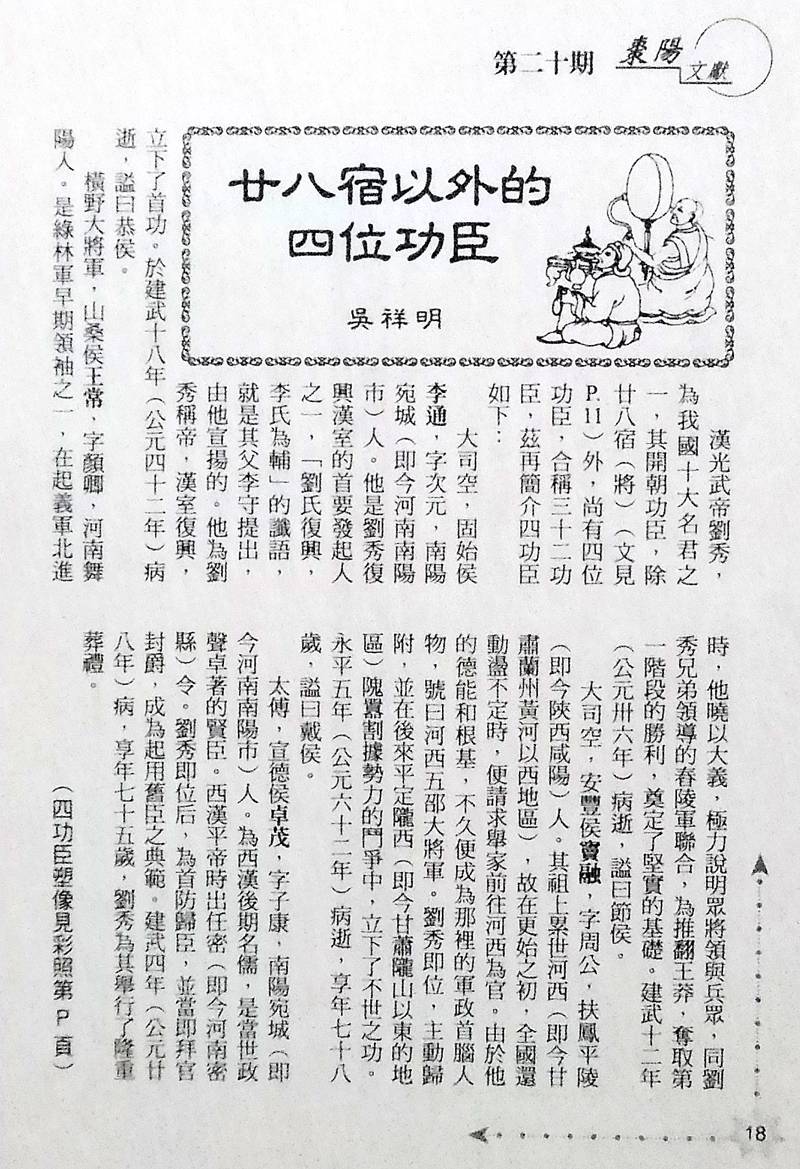 第二十期
棗陽
文獻
廿八宿以外的
四位功臣
吳祥明
漢光武帝劉秀，
為我國十大名君之
一，其開朝功臣，除
廿八宿（將）（文見
P.11）外，尚有四位
功臣，合稱三十二功
臣，茲再簡介四功臣
如下：
大司空，固始侯
李通，字次元，南陽
宛城（即今河南南陽
市）人。他是劉秀復
興漢室的首要發起人
之一，「劉氏復興，
李氏為輔」的讖語，
就是其父李守提出，
由他宣揚的。他為劉
秀稱帝，漢室復興，
立下了首功。於建武十八年（公元四十二年）病
逝，諡曰恭侯。
橫野大將軍，山桑侯王常，字顏卿，河南舞
陽人。是綠林軍早期領袖之一，在起義軍北進
時，他曉以大義，極力說明眾將領與兵眾，同劉
秀兄弟領導的舂陵軍聯合，為推翻王莽，奪取第
一階段的勝利，奠定了堅實的基礎。建武十二年
（公元卅六年）病逝，諡曰節侯。
大司空，安豐侯竇融，字周公，扶鳳平陵
（即今陝西咸陽）人。其祖上累世河西（即今甘
肅蘭州黃河以西地區），故在更始之初，全國還
動盪不定時，便請求舉家前往河西為官。由於他
的德能和根基，不久便成為那裡的軍政首腦人
物，號曰河西五部大將軍。劉秀即位，主動歸
附，並在後來平定隴西（即今甘蕭隴山以東的地
區）隗囂割據勢力的鬥爭中，立下了不世之功。
永平五年（公元六十二年）病逝，享年七十八
歲，諡曰戴侯。
太傅，宣德侯卓茂，字子康，南陽宛城（即
今河南南陽市）人。為西漢後期名儒，是當世政
聲卓著的賢臣。西漢平帝時出任密（即今河南密
縣）令。劉秀即位后，為首防歸臣，並當即拜官
封爵，成為起用舊臣之典範。建武四年（公元廿
八年）病，享年七十五歲，劉秀為其舉行了隆重
葬禮。
（四功臣塑像見彩照第P頁）
18